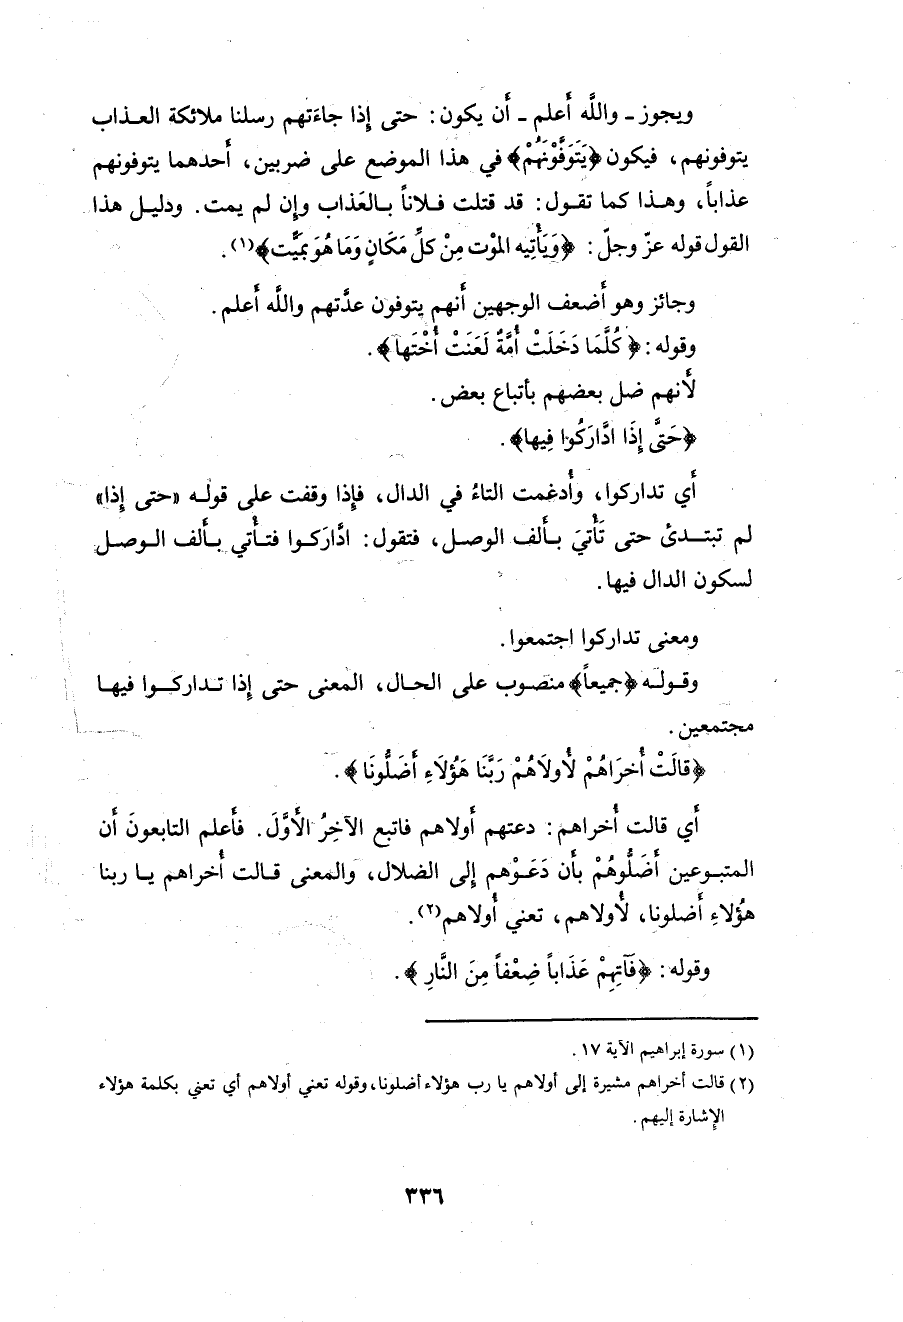 ويجوز ـ واللَّه أَعلم ـ أَن يكون: حتى إِذا جاءَتهم رسلنا ملائكة العـذاب
يتوفونهم، فيكون ﴿يَتَوَفَّوْنَهُمْ﴾ في هذا الموضع على ضربين، أَحدهما يتوفونهم
عذاباً، وهـذا كما تقـول: قد قتلت فـلاناً بـالعَذاب وإِن لم يمت. ودليـل هذا
القول قوله عزّ وجلّ: ﴿وَيَأْتِيه المَوْت مِنْ كلِّ مَكَانٍ وَمَا هُوَ بمَيِّت﴾(١).
وجائز وهو أَضعف الوجهين أَنهم يتوفون عدَّتهم واللَّه أَعلم.
وقوله: ﴿كُلَّمَا دَخَلَتْ أُمَّةٌ لَعَنَتْ أُخْتَها﴾.
لأَنهم ضل بعضهم بأتباع بعض.
﴿حَتَّى إِذَا ادَّارَكُوا فِيها﴾.
أَي تداركوا، وأُدغمت التاءُ في الدال، فإذا وقفت على قولـه «حتى إِذا»
لم تبتـدئ حتى تَأْتيَ بـألف الوصـل، فتقول: ادَّارَكـوا فتـأتي بـألف الـوصـل
لسكون الدال فيها.
ومعنى تداركوا اجتمعوا.
وقـولـه ﴿جميعاً﴾ منصـوب على الحـال، المعنى حتى إِذا تـداركـوا فيهـا
مجتمعين.
﴿قالَتْ أُخرَاهُمْ لأُولاَهُمْ رَبَّنَا هَؤُلاَءِ أَضَلُّونَا﴾.
أَي قالت أُخراهم: دعتهم أولاهم فاتبع الآخِرُ الأَوَّلَ. فأَعلم التابعونَ أَن
المتبـوعين أَضَلُّوهُمْ بأَن دَعَـوْهم إِلى الضلال، والمعنى قـالت أُخراهم يـا ربنا
هؤُلاءِ أَضلونا، لأُولاهم، تعني أُولاهم(٢).
وقوله: ﴿فَآتِهِمْ عَذَاباً ضِعْفاً مِنَ النَّارِ﴾.
(١) سورة إبراهيم الآية ١٧.
(٢) قالت أخراهم مشيرة إلى أولاهم يا رب هؤلاء أضلونا، وقوله تعني أولاهم أي تعني بكلمة هؤلاء
الإشارة إليهم.
٣٣٦